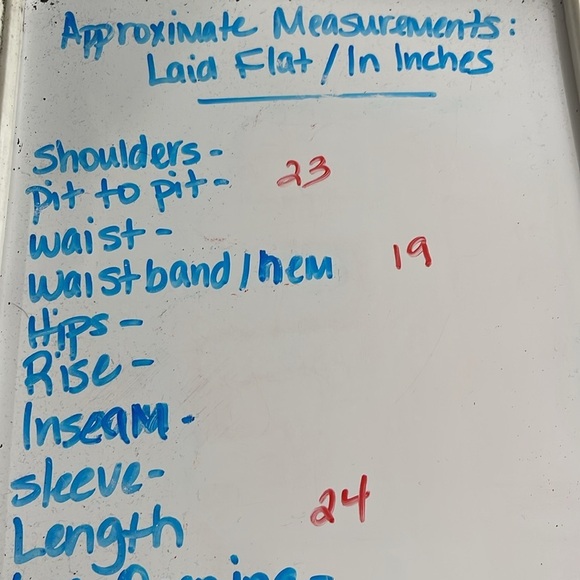 Approximate Measurements:
Laid Flat / In Inches
Shoulders -
Pit to pit - 23
Waist -
Waistband / hem 19
Hips -
Rise -
Inseam -
Sleeve -
Length 24